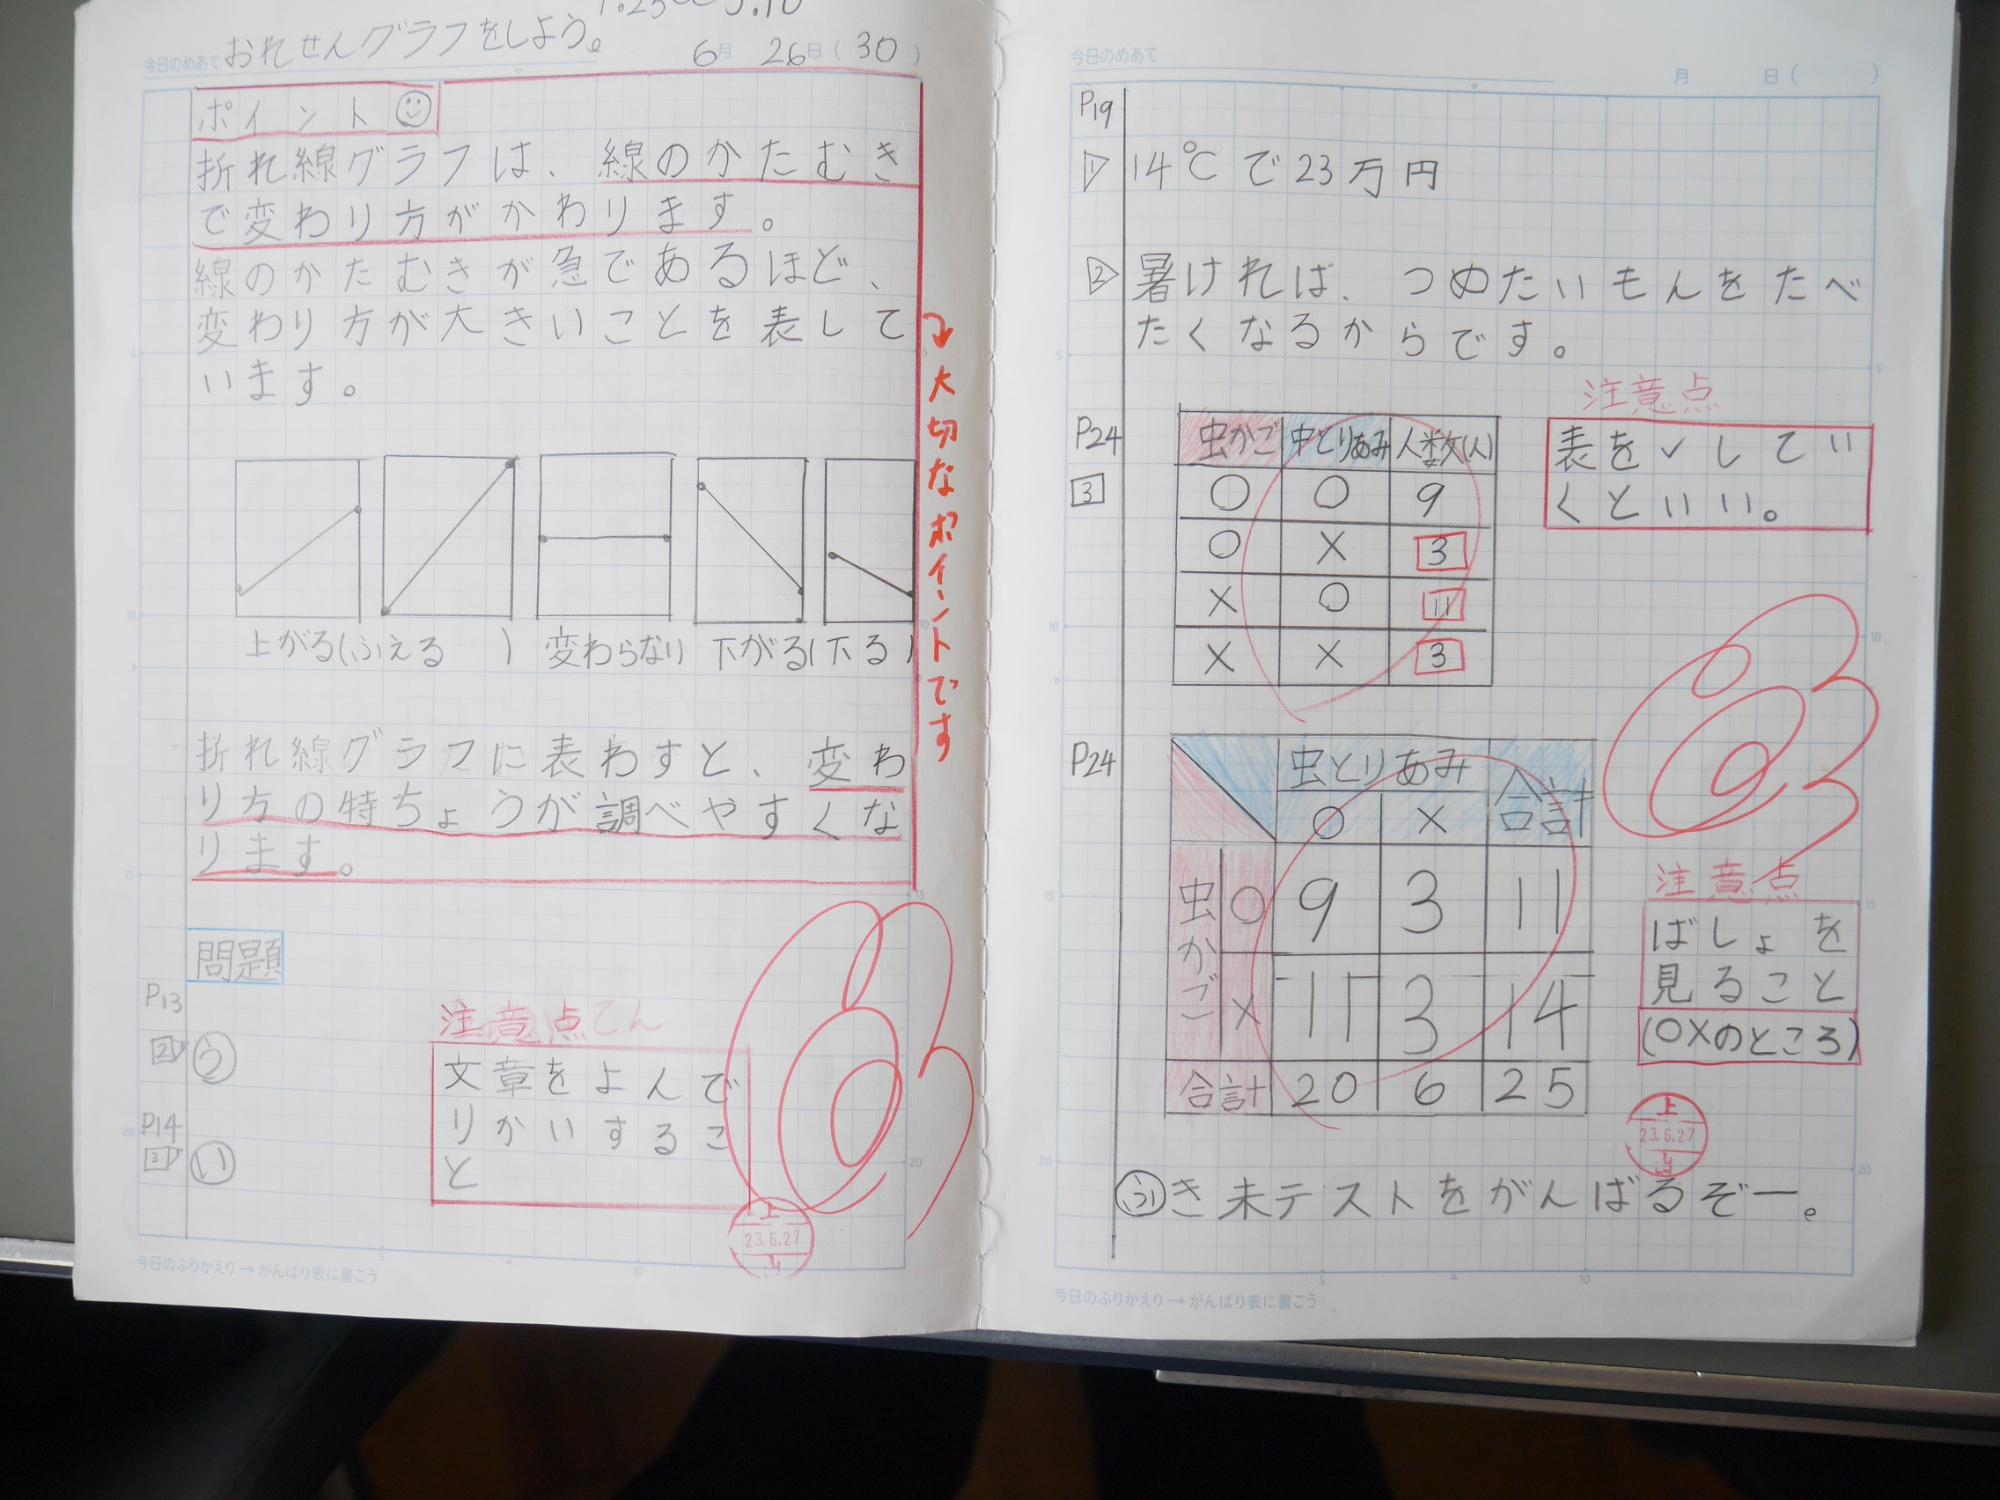 今日のめあて おれせんグラフをしよう。
6月 26日(30)
ポイント
折れ線グラフは、線のかたむき
で変わり方がかわります。
線のかたむきが急であるほど、
変わり方が大きいことを表して
います。
大切なポイントです
上がる(ふえる ) 変わらない 下がる(下る)
折れ線グラフに表わすと、変わ
り方の特ちょうが調べやすくな
ります。
問題
P13
2 う
P14
3 い
注意点てん
文章をよんで
りかいするこ
と
上
23.6.27
今日のふりかえり→がんばり表に書こう
今日のめあて
月 日( )
P19
1 14℃で23万円
2 暑ければ、つめたいもんをたべ
たくなるからです。
P24
3
虫かご 虫とりあみ 人数(人)
○ ○ 9
○ × 3
× ○ 11
× × 3
注意点
表を✓してい
くといい。
P24
虫とりあみ 合計
○ ×
虫かご
○ 9 3 11
× 11 3 14
合計 20 6 25
注意点
ばしょを
見ること
(○×のところ)
上
23.6.27
ふき末テストをがんばるぞー。
今日のふりかえり→がんばり表に書こう